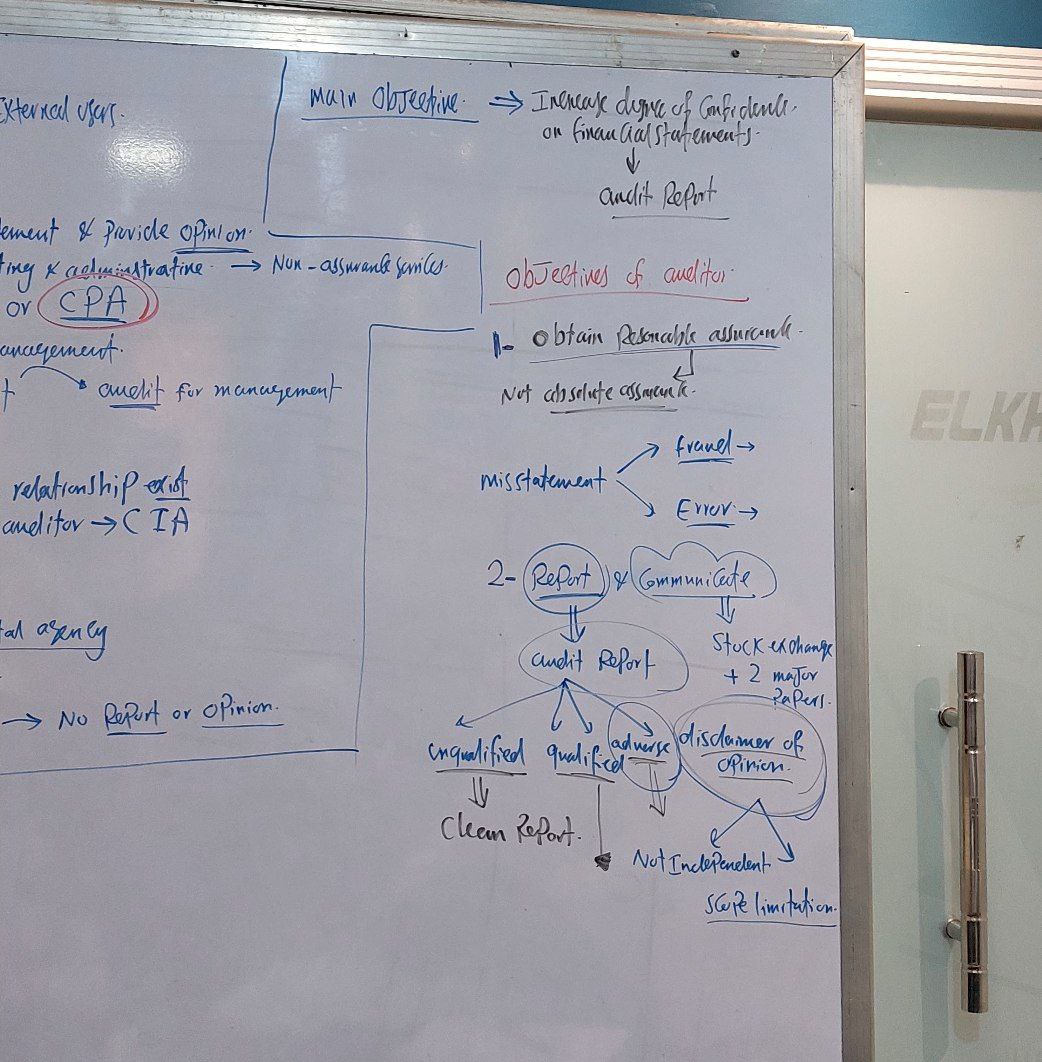 External users.
ement & provide opinion.
ting & administrative. → Non-assurance services.
or CPA
anagement.
t audit for management
relationship exist
auditor → CIA
tal agency
→ No Report or opinion.
main objective. ⇒ Increase degree of Confidence.
on financial statements.
↓
audit Report
objectives of auditor.
1- obtain Resonable assurance.
Not absolute assurance.
misstatement
fraud →
Error →
2- Report & Communicate
audit Report
Stock exchange
+ 2 major
Papers.
unqualified qualified adverse disclaimer of
opinion.
Clean Report.
Not Independent
scope limitation.
ELKH